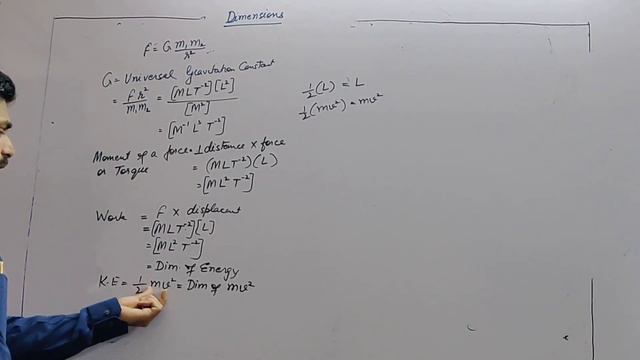 Dimensions
F = G m₁m₂/r² ...
G = Universal Gravitation Constant
= F r²/m₁m₂ = [MLT⁻²][L²]/[M²]
= [M⁻¹ L³ T⁻²]
Moment of a force = ⊥ distance × force
or Torque = (MLT⁻²)(L)
= [ML² T⁻²]
Work = F × displacement
= [MLT⁻²][L]
= [ML² T⁻²]
= Dim. of Energy
K.E = 1/2 mv² = Dim of mv²
1/2 (L) = L
1/2 (mv²) = mv²